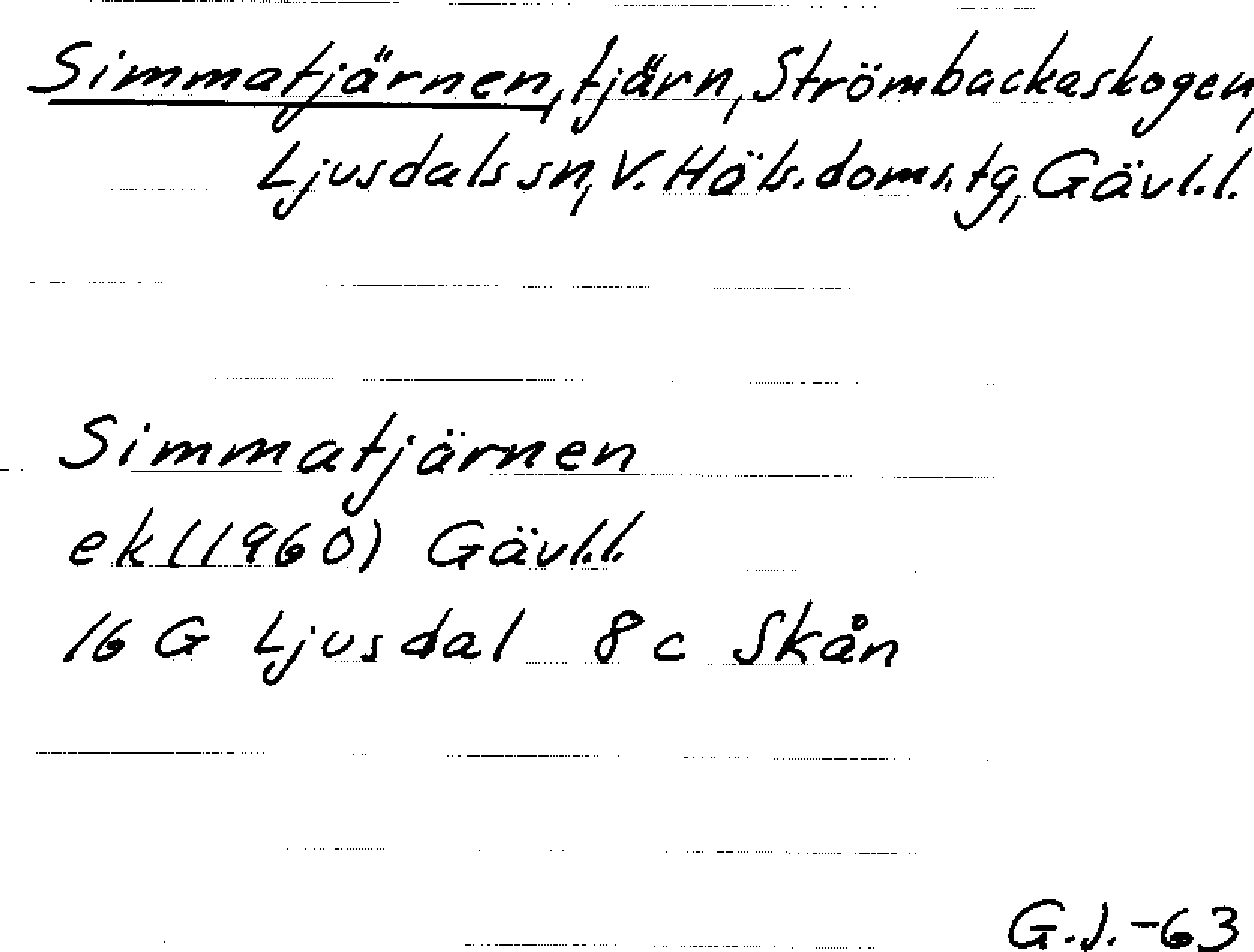 Simmatjärnen, tjärn, Strömbackaskogen,
Ljusdals sn, V. Häls. doms. tg, Gävl.l.
Simmatjärnen
ek (1960) Gävl.l.
16 G Ljusdal 8 c Skån
G.J. -63